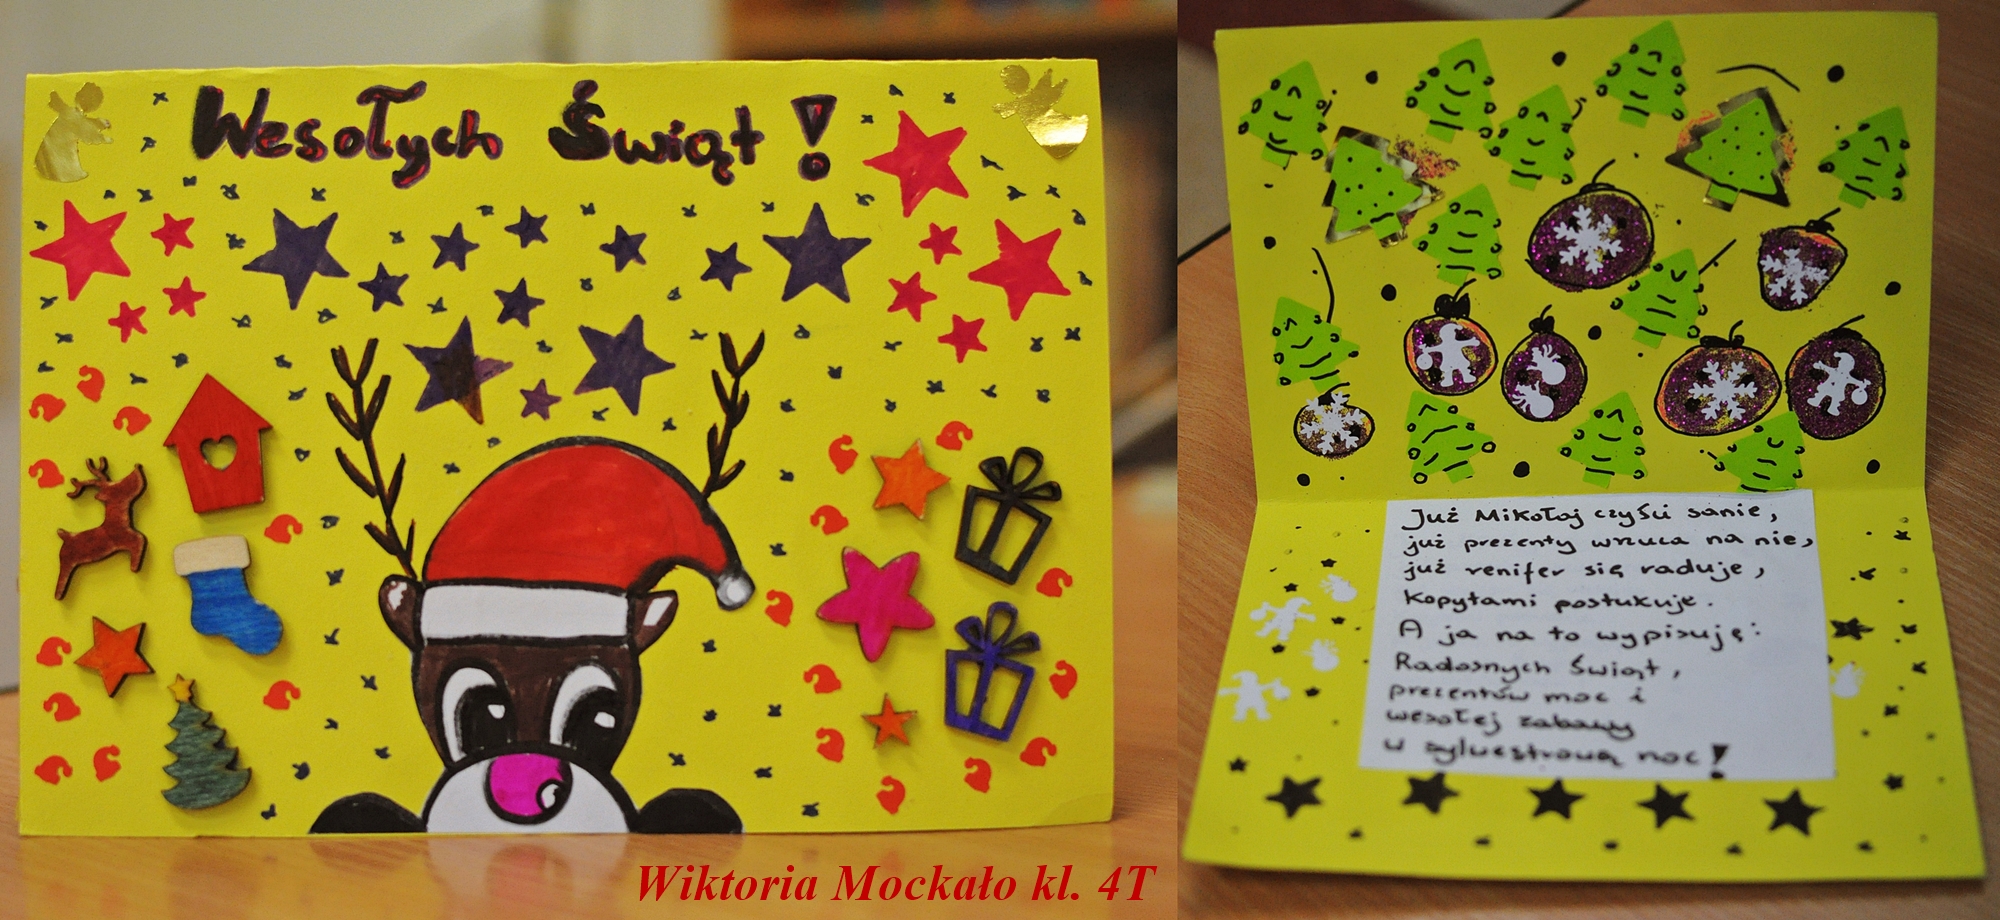 Wesołych Świąt!
Już Mikołaj czyści sanie,
już prezenty wrzuca na nie,
już renifer się raduje,
kopytami postukuje.
A ja na to wypisuję:
Radosnych Świąt,
prezentów moc i
wesołej zabawy
w sylwestrową noc!
Wiktoria Mockało kl. 4T